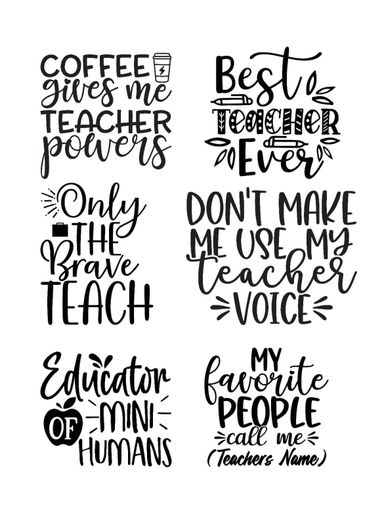 COFFEE
gives me
TEACHER
powers
Best
TEACHER
Ever
Only
THE
Brave
TEACH
DON'T MAKE
ME USE MY
teacher
VOICE
Educator
OF MINI
HUMANS
MY
favorite
PEOPLE
call me
(Teachers Name)